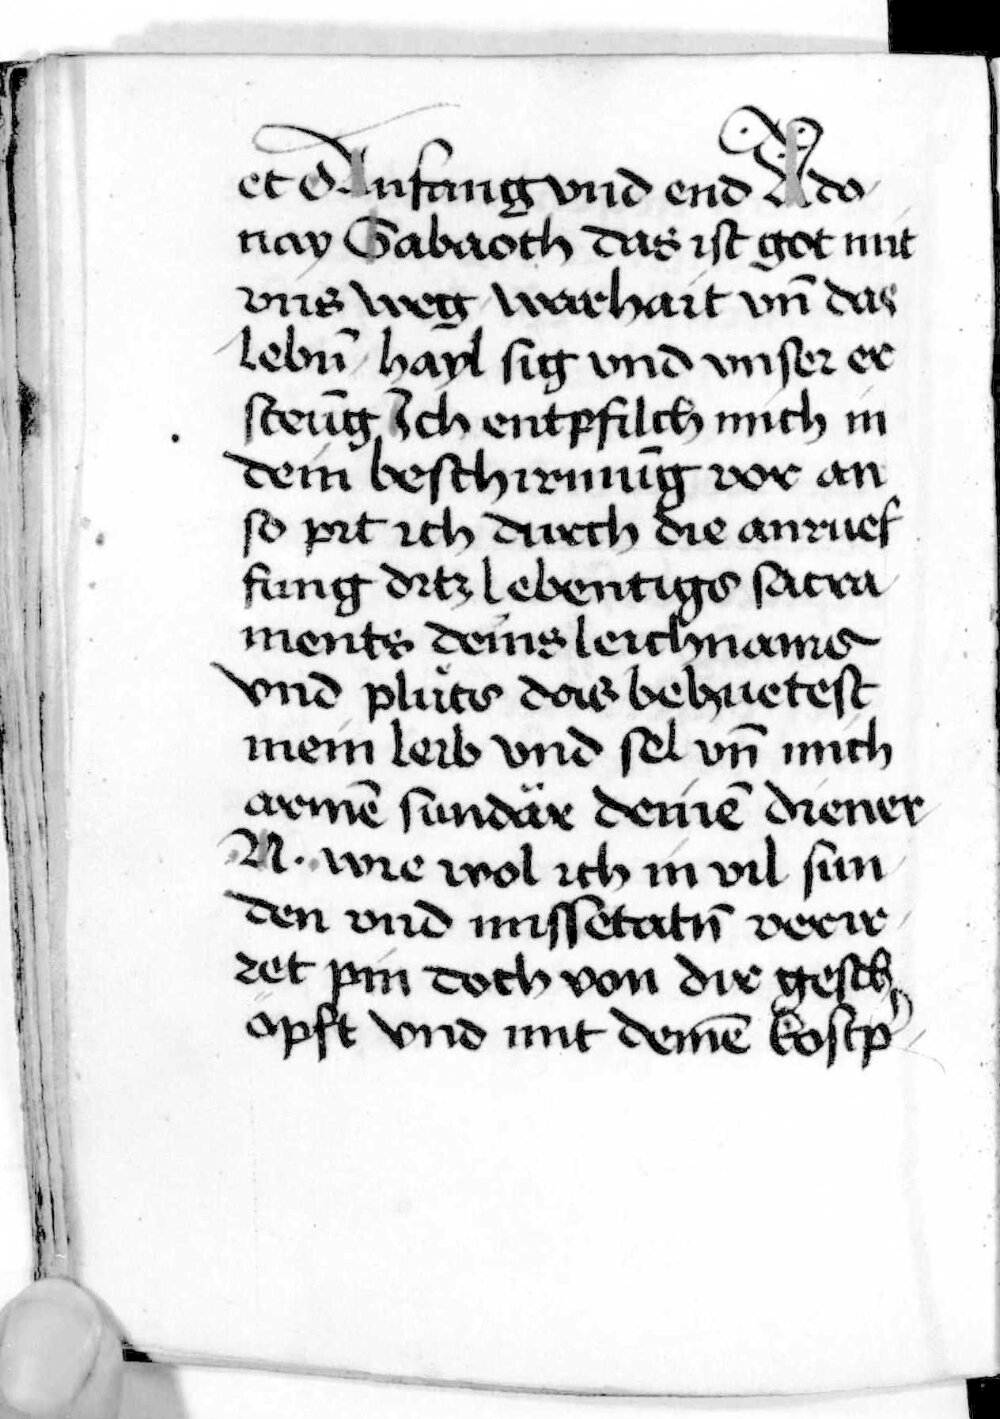 et O Anfang vnd end Ado
nay Sabaoth das ist got mit
vns weg warhait vn̄ das
lebn̄ hayl sig vnd vnser er
steūg Ich entpfilch mich in
dein beschirmūg vor an
so pit ich durch die anruef
fung ditz lebentigs sacra
ments deins leichnams
vnd plůts das behuetest
mein leib vnd sel vn̄ mich
armē sundär deinē diener
N. wie wol ich in vil sun
den vnd missetatn̄ verir
ret pin doch von dir gesch
öpft vnd mit deinē kostp